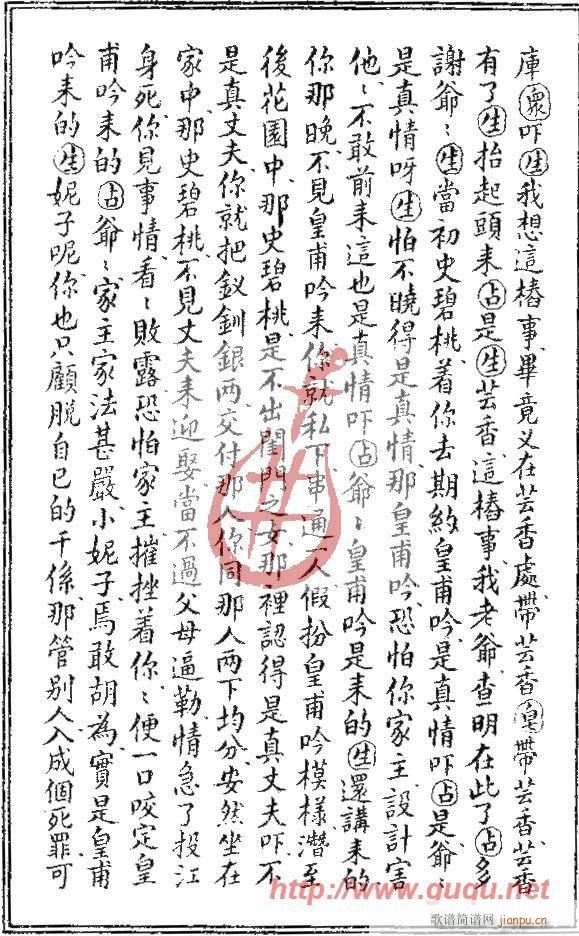 庫眾吓生我想這樁事畢竟又在芸香處帶芸香皂帶芸香芸香
有了生抬起頭來占是生芸香這樁事我老爺查明在此了占多
謝爺〻生當初史碧桃着你去期約皇甫吟是真情吓占是爺〻
是真情呀生怕不曉得是真情那皇甫吟恐怕你家主設計害
他〻不敢前來這也是真情吓占爺〻皇甫吟是來的生還講來的
你那晚不見皇甫吟來你就私下串通一人假扮皇甫吟模樣潛至
後花園中那史碧桃是不出閨門之女那裡認得是真丈夫吓不
是真丈夫你就把釵釧銀兩交付那人你同那人兩下均分安然坐在
家中那史碧桃不見丈夫來迎娶當不過父母逼勒情急了投江
身死你見事情看〻敗露恐怕家主摧挫着你〻便一口咬定皇
甫吟來的占爺〻家主家法甚嚴小妮子焉敢胡為實是皇甫
吟來的生妮子呢你也只顧脫自已的干係那管別人入成個死罪可
http://www.guqu.net
歌谱简谱网
jianpu.cn